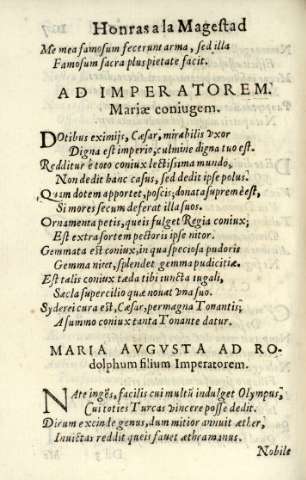 Honras a la Magestad
Me mea famosum fecerunt arma, sed illa
Famosum sacra plus pietate facit.
AD IMPERATOREM.
Mariæ coniugem.
Dotibus eximijs, Cæsar, mirabilis vxor
Digna est imperio, culmine digna tuo est.
Redditur è toto coniux lectissima mundo,
Non dedit hanc casus, sed dedit ipse polus.
Quam dotem apportet, poscis; donata supremè est,
Si mores secum deferat illa suos.
Ornamenta petis, queis fulget Regia coniux;
Est extra sortem pectoris ipse nitor.
Gemmata est coniux, in qua speciosa pudoris
Gemma niret, splendet gemma pudicitiæ.
Est talis coniux tæda tibi iuncta iugali,
Sæcla supercilio quæ nouat vna suo.
Syderei cura est, Cæsar, permagna Tonantis;
A summo coniux tanta Tonante datur.
MARIA AVGVSTA AD RO-
dolphum filium Imperatorem.
NAte ingēs, facilis cui multū indulget Olympus,
Cui toties Turcas vincere posse dedit.
Dirum excinde genus, dum mitior annuit æther,
Inuictas reddit queis fauet æthra manus.
Nobile